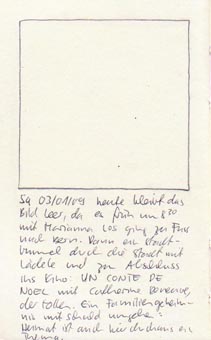 Sa 03/01/09 heute bleibt das
Bild leer, da es früh um 8:30
mit Marianna los ging zu Fuss
nach Bern. Dann ein Stadt-
bummel durch die Stadt mit
Lädele und zum Abschluss
ins Kino: UN CONTE DE
NOEL mit Catherine Deneuve,
der tollen. Ein Familiengeheim-
nis mit Schuld umgehen.
Heimat ist auch hier durchaus ein
Thema.